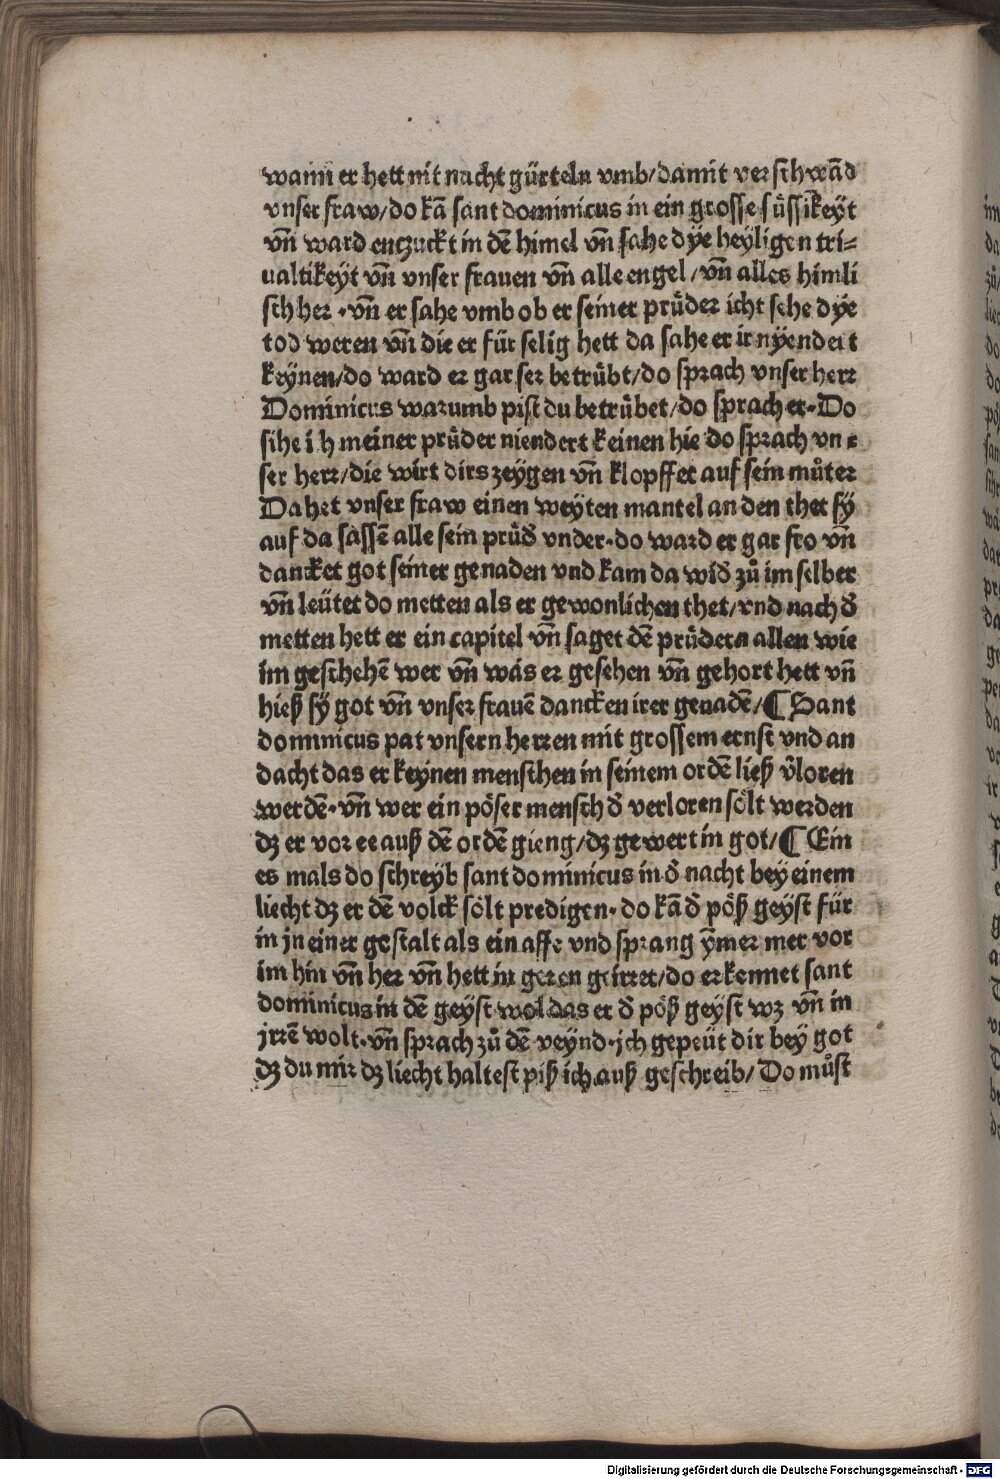 wann er hett nit nacht gürteln vmb/damit verschwãd
vnser fraw/do kã sant dominicus in ein grosse süssikeyt
vñ ward enczuckt in dẽ himel vñ sahe dÿe heyligen tri-
ualtikeÿt vñ vnser frauen vñ alle engel/vñ alles himli
sch her ·vñ er sahe vmb ob er seiner prüder icht sehe dÿe
tod weren vñ die er für selig hett da sahe er ir nÿendert
keÿnen/do ward er gar ser betrübt/do sprach vnser herr
Dominicus warumb pist du betrübet/do sprach er·Do
sihe i h meiner prüder niendert keinen hie do sprach vn
ser herr/die wirt dirs zeÿgen vñ klopffet auf sein můter
Da het vnser fraw einen weÿten mantel an den thet sÿ
auf da sassẽ alle sein prüd̕ vnder·do ward er gar fro vñ
dancket got seiner genaden vnd kam da wid̕ zů im selber
vñ leütet do metten als er gewonlichen thet/vnd nach d̕
metten hett er ein capitel vñ saget dẽ prüdern allen wie
im geschehẽ wer vñ was er gesehen vñ gehort hett vñ
hieß sÿ got vñ vnser frauẽ dancken irer genadẽ/¶ Sant
dominicus pat vnsern herren mit grossem ernst vnd an
dacht das er keÿnen menschen in seinem ordẽ ließ v̕loren
werdẽ·vñ wer ein pöser mensch d̕ verloren sölt werden
dz er vor ee auß dẽ ordẽ gieng/dz gewert in got/¶ Ein
es mals do schreÿb sant dominicus in d̕ nacht beÿ einem
liecht dz er dẽ volck sölt predigen·do kã d̕ pöß geÿst für
in jn einer gestalt als ein affe vnd sprang ÿ̃mer mer vor
im hin vñ her vñ hett in geren geirret/do erkennet sant
dominicus in dẽ geÿst wol das er d̕ pöß geÿst wz vñ in
jrrẽ wolt·vñ sprach zů dẽ veÿnd·jch gepeüt dir beÿ got
dz du mir dz liecht haltest piß ich auß geschreib/Do můst
Digitalisierung gefördert durch die Deutsche Forschungsgemeinschaft - DFG